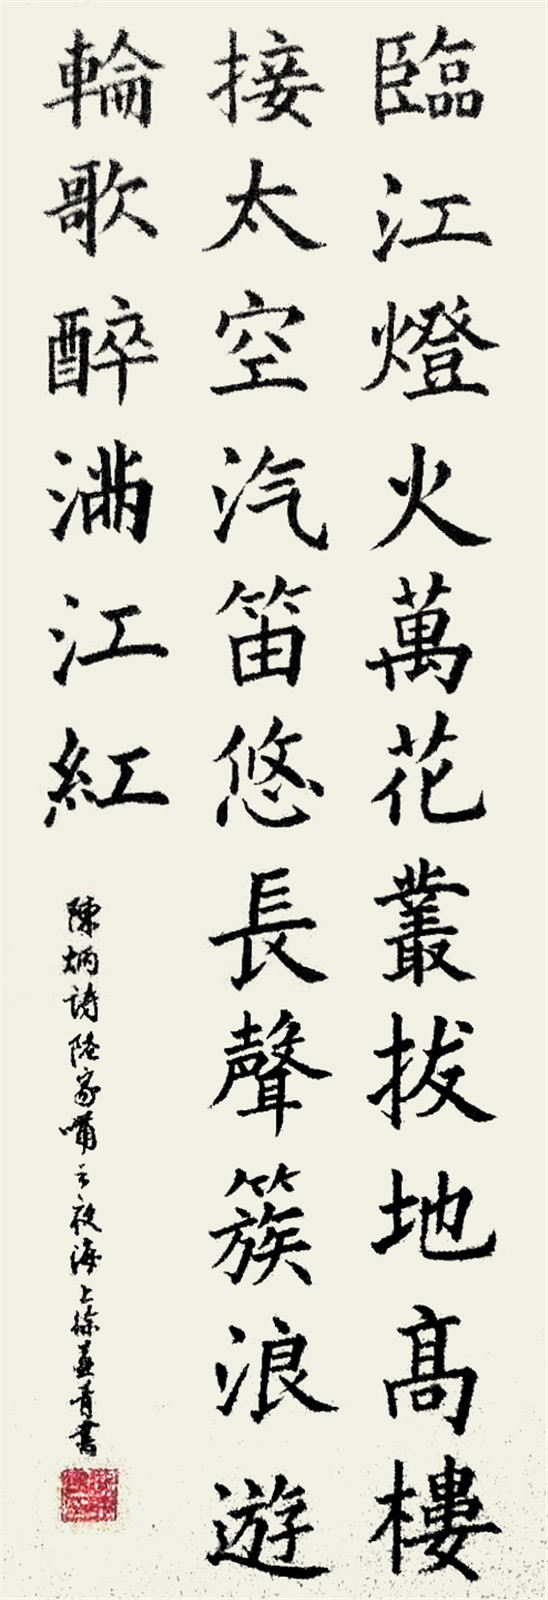 臨江燈火萬花叢拔地高樓
接太空汽笛悠長聲簇浪遊
輪歌醉滿江紅
陳炳詩陸家嘴之夜海上徐孟青書